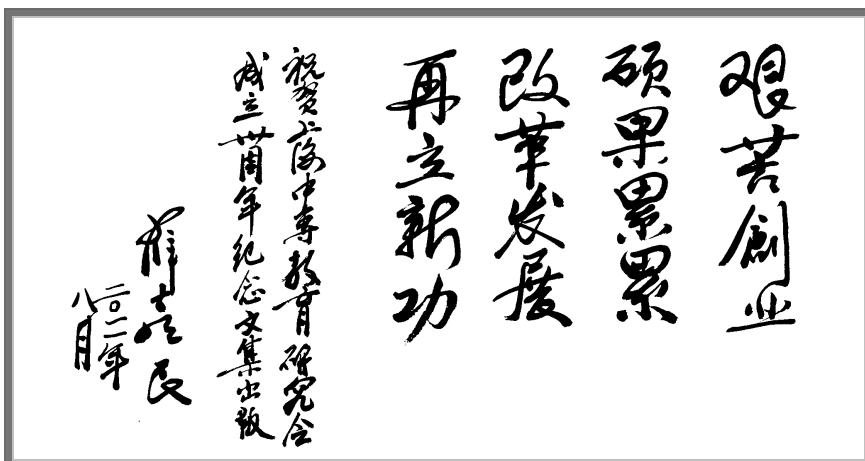 艰苦創业
硕果累累
改革发展
再立新功
祝贺上海中專教育研究会
成立卅周年纪念文集出版
薛喜民
二〇一一年
八月